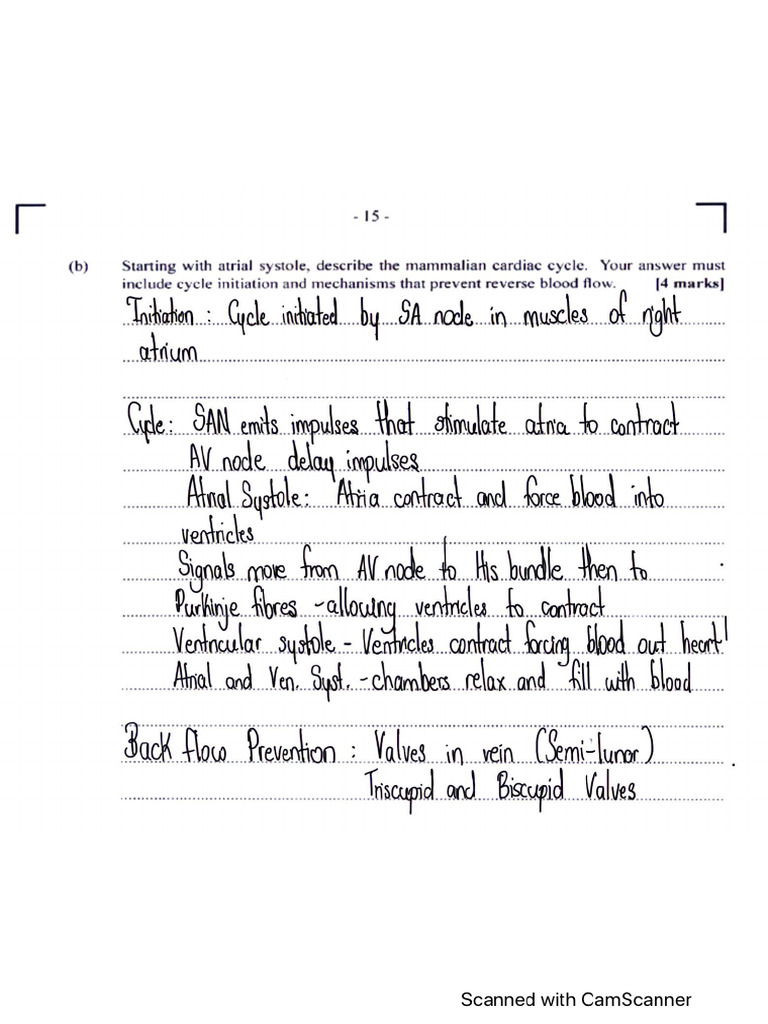 - 15 -
(b) Starting with atrial systole, describe the mammalian cardiac cycle. Your answer must
include cycle initiation and mechanisms that prevent reverse blood flow. [4 marks]
Initiation : Cycle initiated by SA node in muscles of right
atrium
Cycle: SAN emits impulses that stimulate atria to contract
AV node delay impulses
Atrial Systole: Atria contract and force blood into
ventricles
Signals move from AV node to His bundle then to
Purkinje fibres - allowing ventricles to contract
Ventricular systole - Ventricles contract forcing blood out heart
Atrial and Ven. Syst. - chambers relax and fill with blood
Back flow Prevention : Valves in vein (Semi-lunar)
Triscupid and Biscupid Valves
Scanned with CamScanner